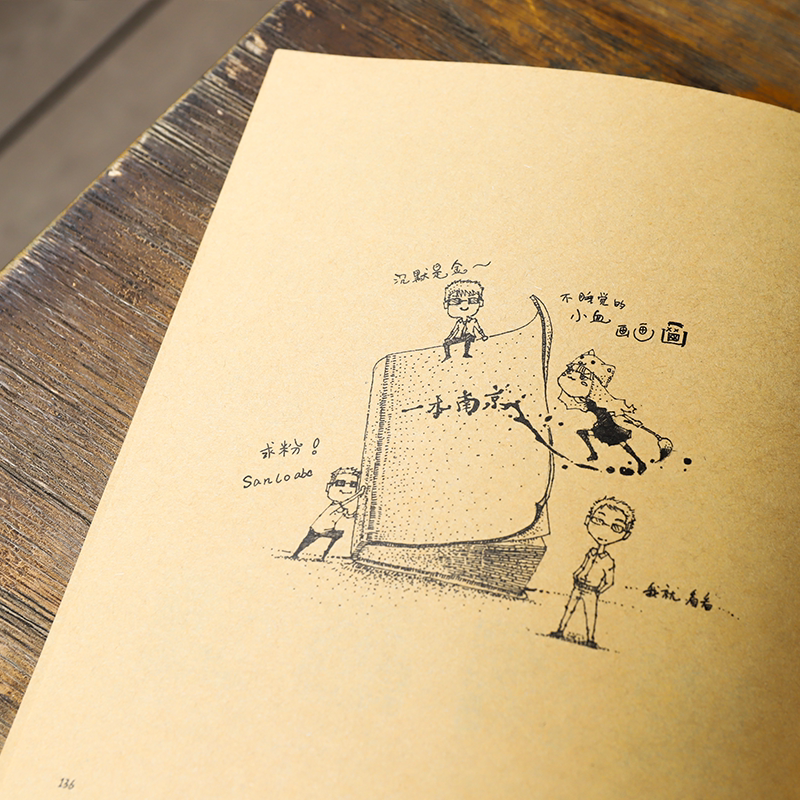 沉默是金～
不睡觉的
小血
画画画
一本南京
求粉！
Sanloabc
我就看看
136